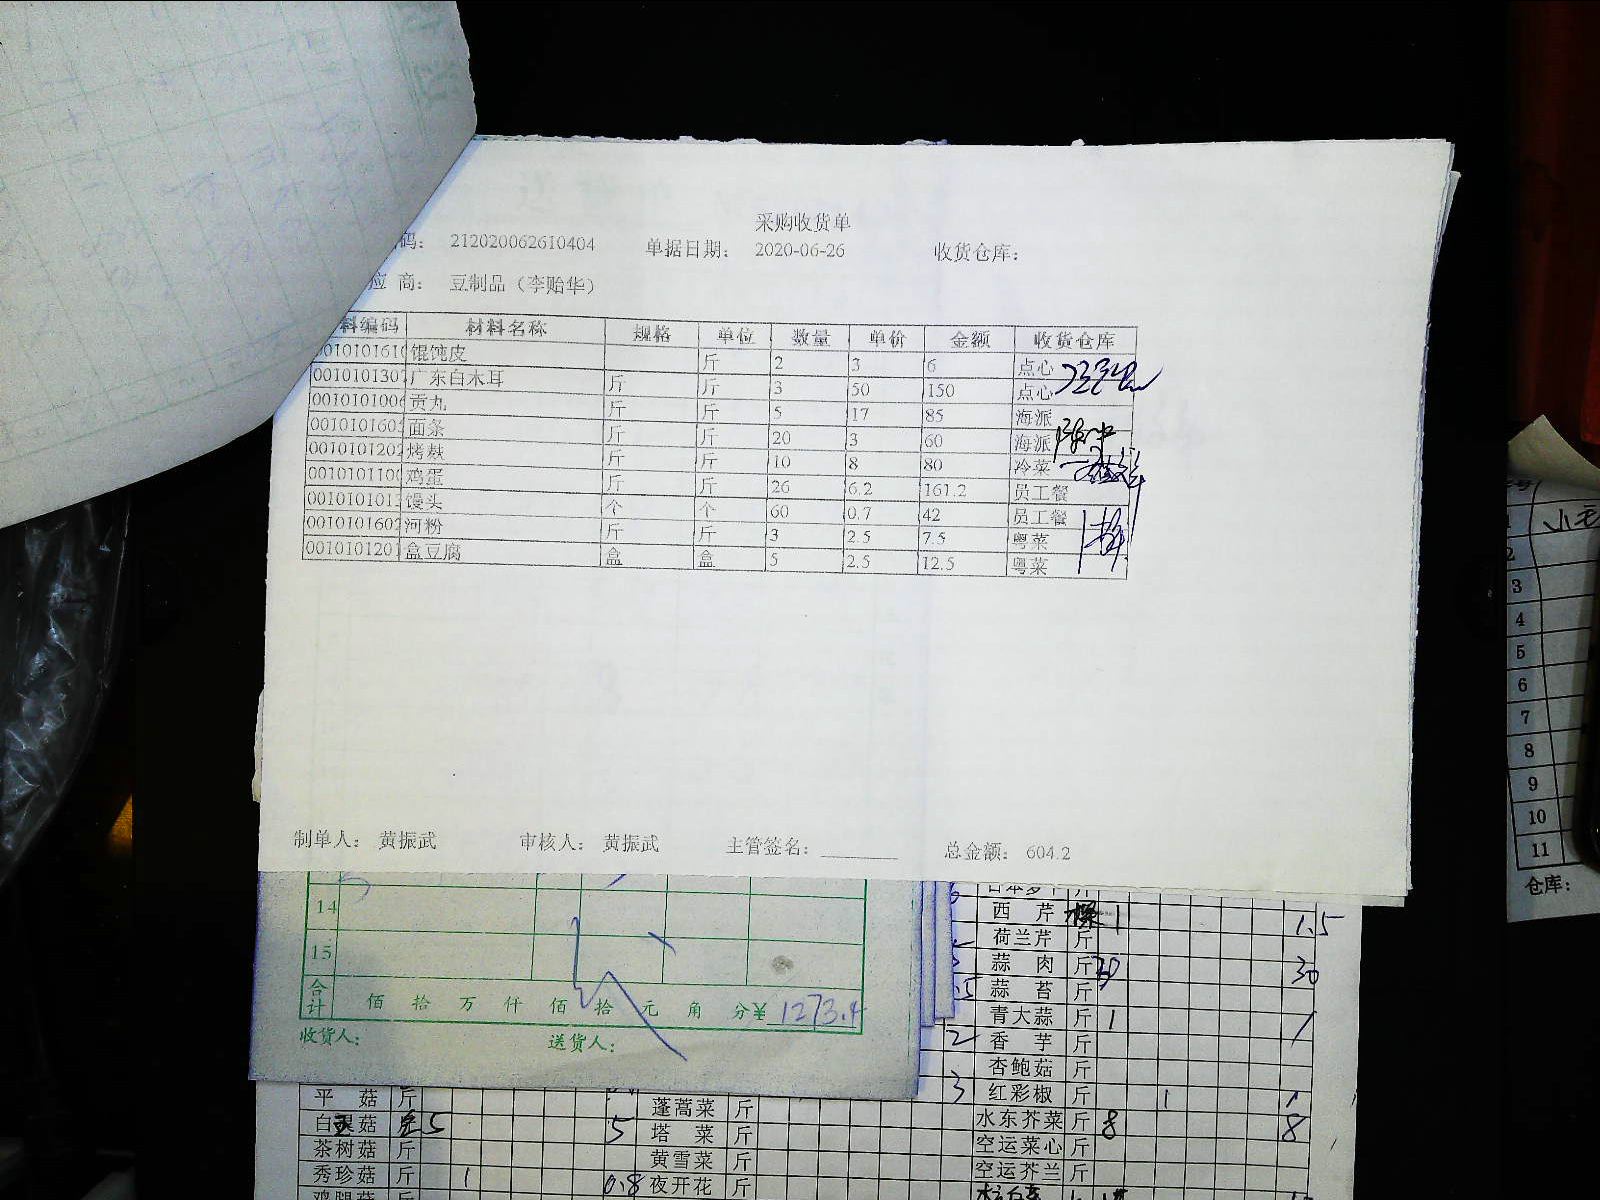 采购收货单
码： 212020062610404 单据日期： 2020-06-26 收货仓库：
应 商： 豆制品（李贻华）
料编码 材料名称 规格 单位 数量 单价 金额 收货仓库
0010101610 馄饨皮 斤 2 3 6 点心
0010101307 广东白木耳 斤 斤 3 50 150 点心
0010101006 贡丸 斤 斤 5 17 85 海派
001010160 面条 斤 斤 20 3 60 海派
0010101202 烤麸 斤 斤 10 8 80 冷菜
001010110 鸡蛋 斤 斤 26 6.2 161.2 员工餐
001010101 馒头 个 个 60 0.7 42 员工餐
0010101602 河粉 斤 斤 3 2.5 7.5 粤菜
0010101201 盒豆腐 盒 盒 5 2.5 12.5 粤菜
制单人： 黄振武 审核人： 黄振武 主管签名： 总金额： 604.2
14
15
合计 佰 拾 万 仟 佰 拾 元 角 分¥ 1273.4
收货人： 送货人：
西 芹 1 1.5
荷兰芹 斤
蒜 肉 斤 30 30
蒜 苔 斤
青大蒜 斤 1 1
香 芋 斤
杏鲍菇 斤
红彩椒 斤 1 1
水东芥菜 斤 8 8
空运菜心 斤
空运芥兰 斤
平 菇 斤 蓬蒿菜 斤
白灵菇 5 5 塔 菜 斤
茶树菇 斤 黄雪菜 斤
秀珍菇 斤 1 0.8 夜开花 斤
3
4
5
6
7
8
9
10
11
仓库：